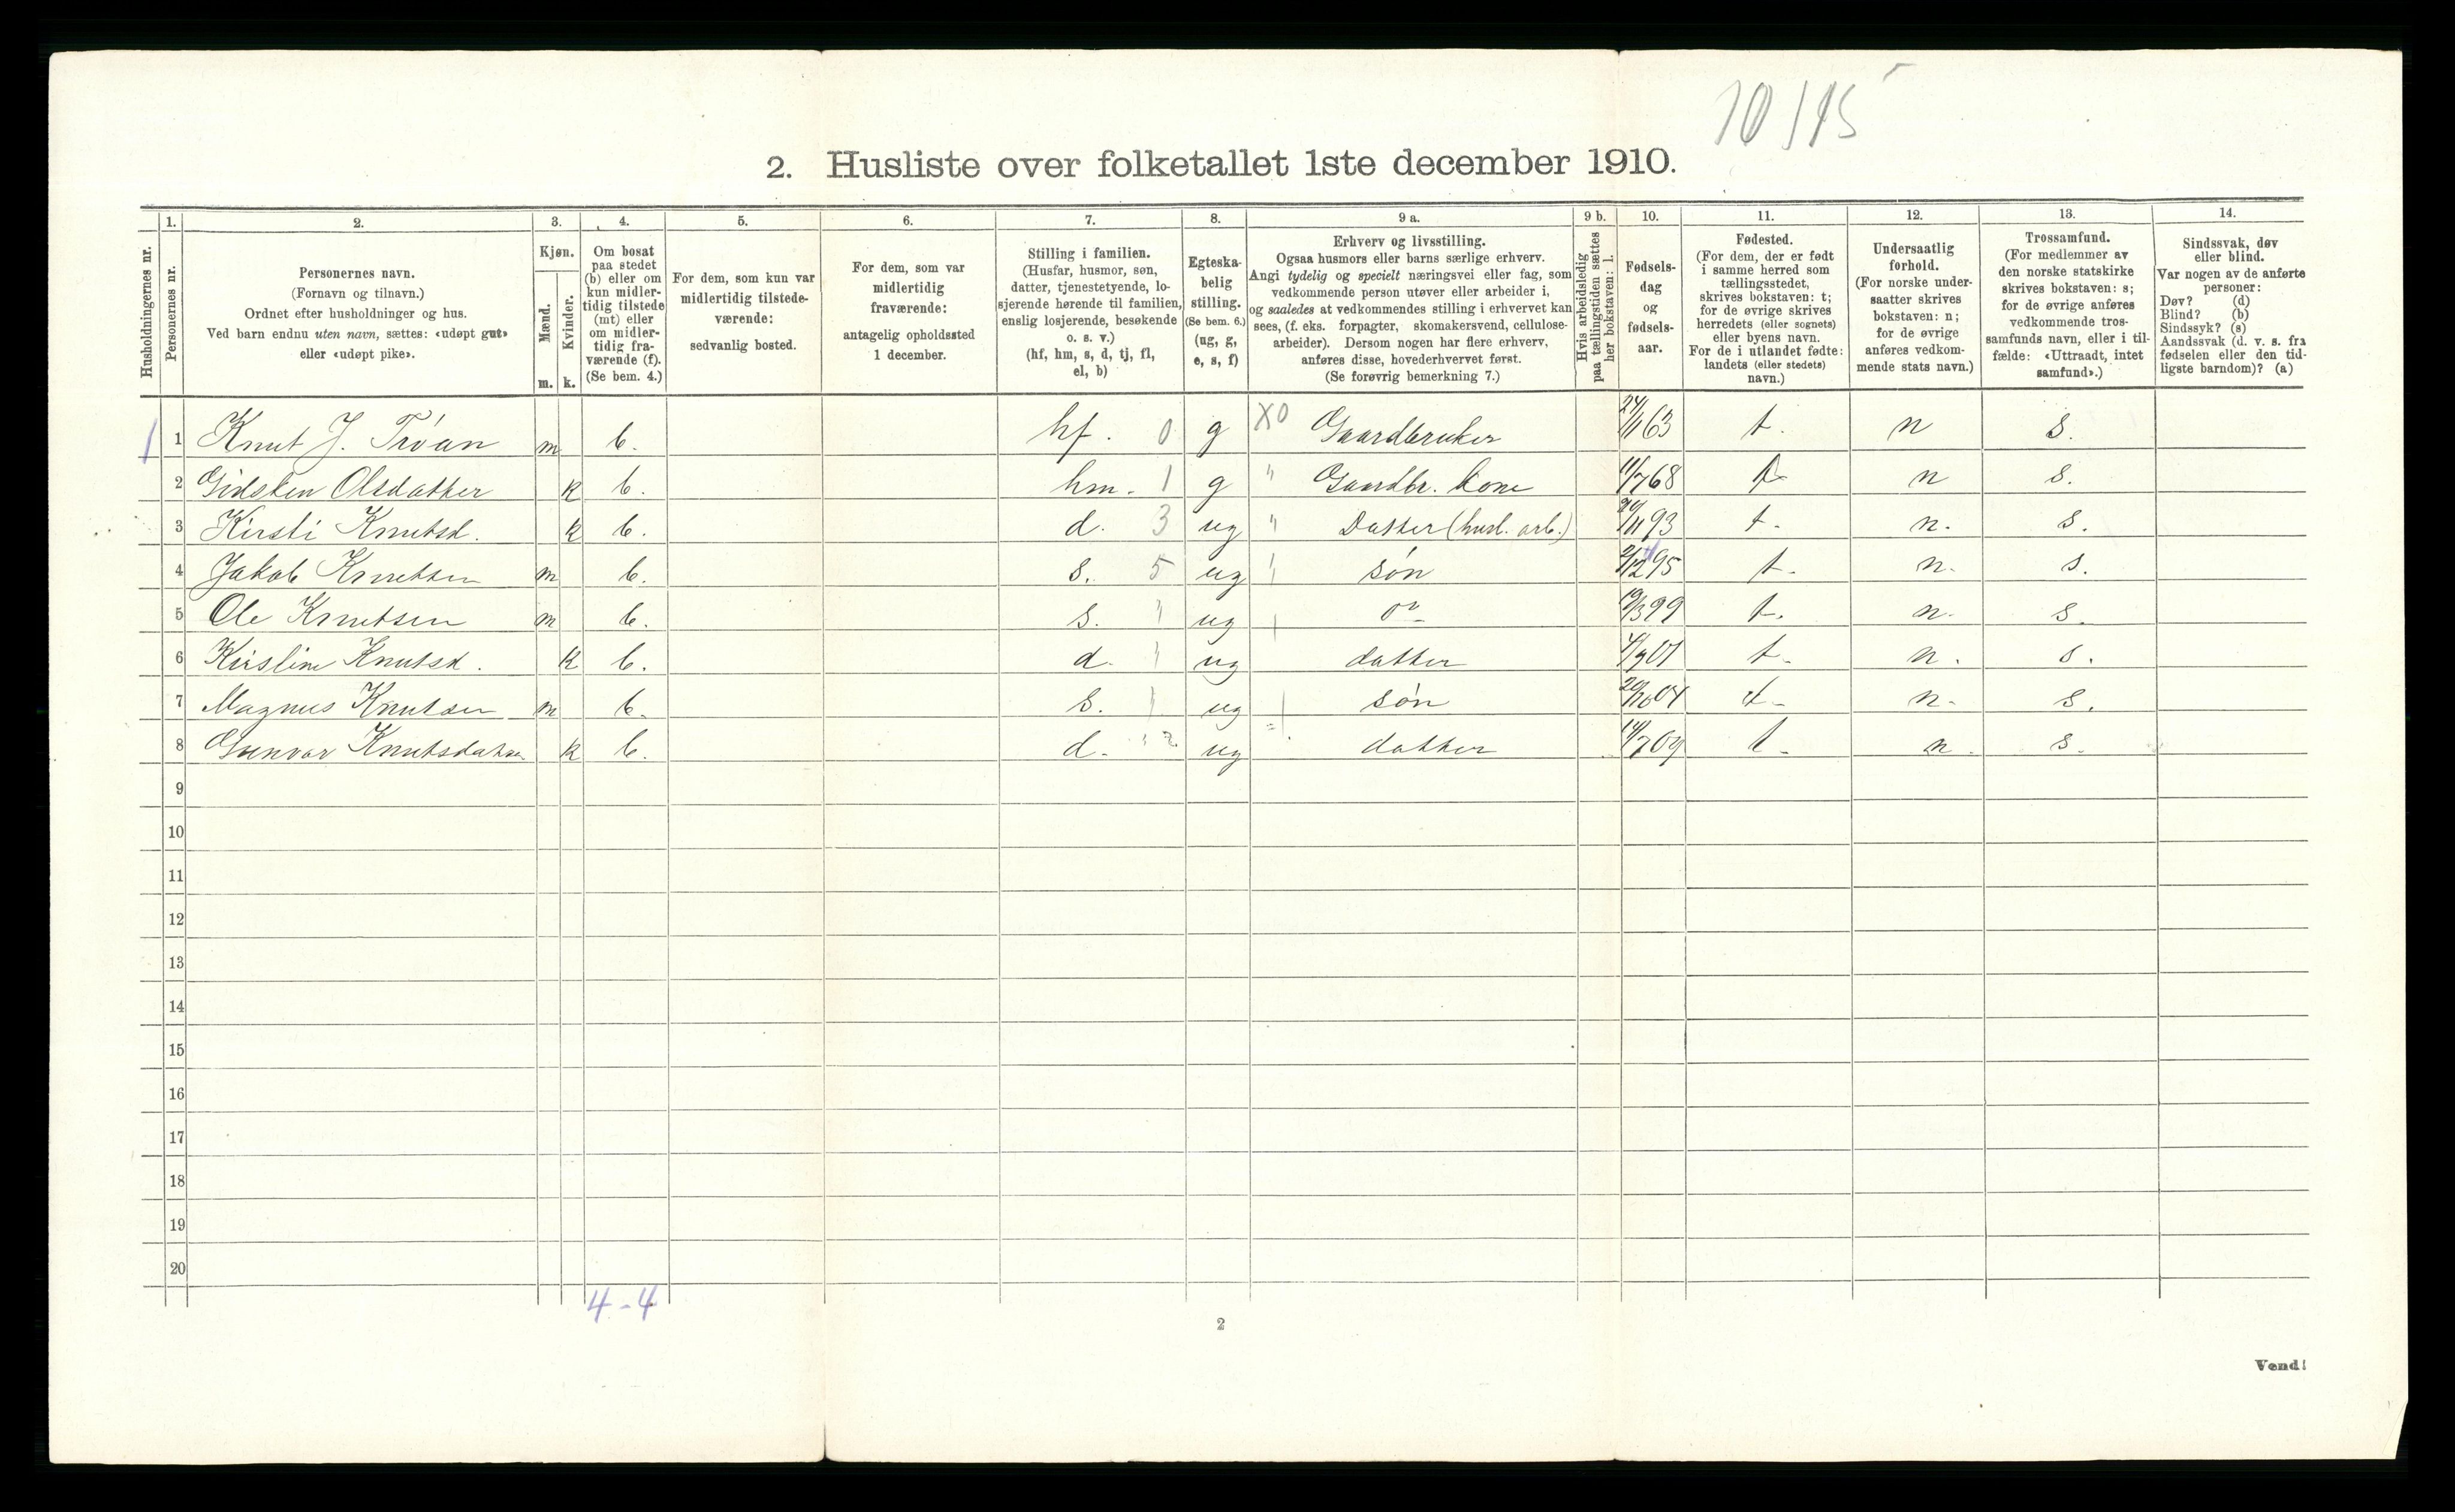 10/15
2. Husliste over folketallet 1ste december 1910.
Husholdningernes nr.
1.
Personernes nr.
2.
Personernes navn.
(Fornavn og tilnavn.)
Ordnet efter husholdninger og hus.
Ved barn endnu uten navn, sættes: «udøpt gut»
eller «udøpt pike».
3.
Kjøn.
Mænd.
m.
Kvinder.
k.
4.
Om bosat
paa stedet
(b) eller om
kun midler-
tidig tilstede
(mt) eller
om midler-
tidig fra-
værende (f).
(Se bem. 4.)
5.
For dem, som kun var
midlertidig tilstede-
værende:
sedvanlig bosted.
6.
For dem, som var
midlertidig
fraværende:
antagelig opholdssted
1 december.
7.
Stilling i familien.
(Husfar, husmor, søn,
datter, tjenestetyende, lo-
sjerende hørende til familien,
enslig losjerende, besøkende
o. s. v.)
(hf, hm, s, d, tj, fl,
el, b)
8.
Egteska-
belig
stilling.
(Se bem. 6.)
(ug, g,
e, s, f)
9 a.
Erhverv og livsstilling.
Ogsaa husmors eller barns særlige erhverv.
Angi tydelig og specielt næringsvei eller fag, som
vedkommende person utøver eller arbeider i,
og saaledes at vedkommendes stilling i erhvervet kan
sees, (f. eks. forpagter, skomakersvend, cellulose-
arbeider). Dersom nogen har flere erhverv,
anføres disse, hovederhvervet først.
(Se forøvrig bemerkning 7.)
9 b.
Hvis arbeidsledig
paa tællingstiden sættes
her bokstaven: l.
10.
Fødsels-
dag
og
fødsels-
aar.
11.
Fødested.
(For dem, der er født
i samme herred som
tællingsstedet,
skrives bokstaven: t;
for de øvrige skrives
herredets (eller sognets)
eller byens navn.
For de i utlandet fødte:
landets (eller stedets)
navn.)
12.
Undersaatlig
forhold.
(For norske under-
saatter skrives
bokstaven: n;
for de øvrige
anføres vedkom-
mende stats navn.)
13.
Trossamfund.
(For medlemmer av
den norske statskirke
skrives bokstaven: s;
for de øvrige anføres
vedkommende tros-
samfunds navn, eller i til-
fælde: «Uttraadt, intet
samfund».)
14.
Sindssvak, døv
eller blind.
Var nogen av de anførte
personer:
Døv? (d)
Blind? (b)
Sindssyk? (s)
Aandssvak (d. v. s. fra
fødselen eller den tid-
ligste barndom)? (a)
1 1 Knut J. Tröan m b. hf. 0 g X0 Gaardbruker 24/11 63 t. n s.
2 Gidsken Olsdatter k b. hm. 1 g " Gaardbr. kone 11/7 68 t n s.
3 Kirsti Knutsd. k b. d. 3 ug " Datter (husl. arb.) 93 t. n. s.
4 Jakob Knutsen m b. s. 5 ug " søn 2/12 95 t. n. s.
5 Ole Knutsen m b. s. " ug do 19/3 99 t. n. s.
6 Kirstine Knutsd. k b. d. " ug datter 4/9 01 t. n. s.
7 Magnus Knutsen m b. s. ug søn 20/10 04 t. n. s.
8 Gunvor Knutsdatter k b. d. ug datter 14/7 09 t. n. s.
9
10
11
12
13
14
15
16
17
18
19
20
4 - 4
2
Vend!